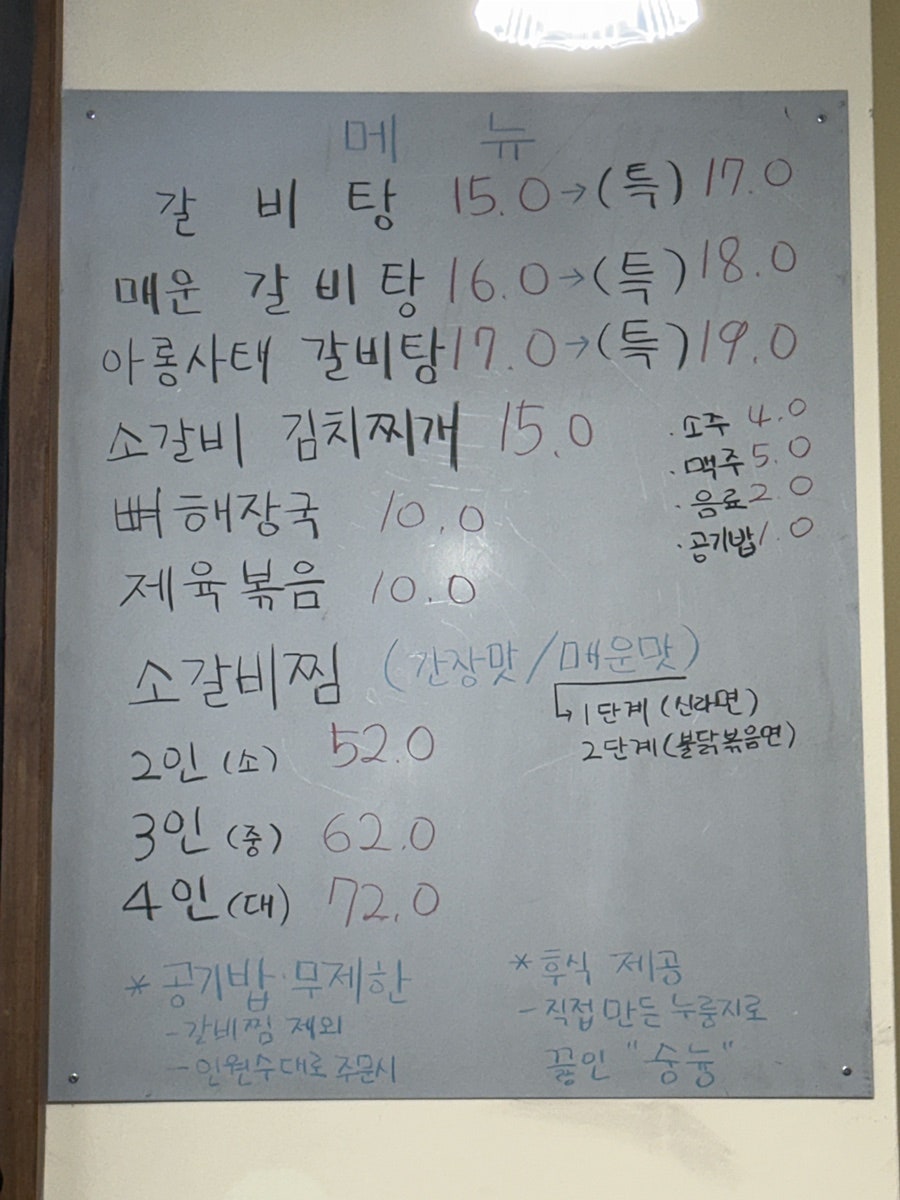 메 뉴
갈 비 탕 15.0→(특) 17.0
매운 갈비탕 16.0→(특) 18.0
아롱사태 갈비탕 17.0→(특) 19.0
소갈비 김치찌개 15.0
· 소주 4.0
· 맥주 5.0
· 음료 2.0
· 공기밥 1.0
뼈해장국 10.0
제육볶음 10.0
소갈비찜 (간장맛/매운맛)
↳ 1단계 (신라면)
2단계 (불닭볶음면)
2인 (소) 52.0
3인 (중) 62.0
4인 (대) 72.0
* 공기밥·무제한
- 갈비찜 제외
- 인원수대로 주문시
* 후식 제공
- 직접 만든 누룽지로
끓인 "숭늉"